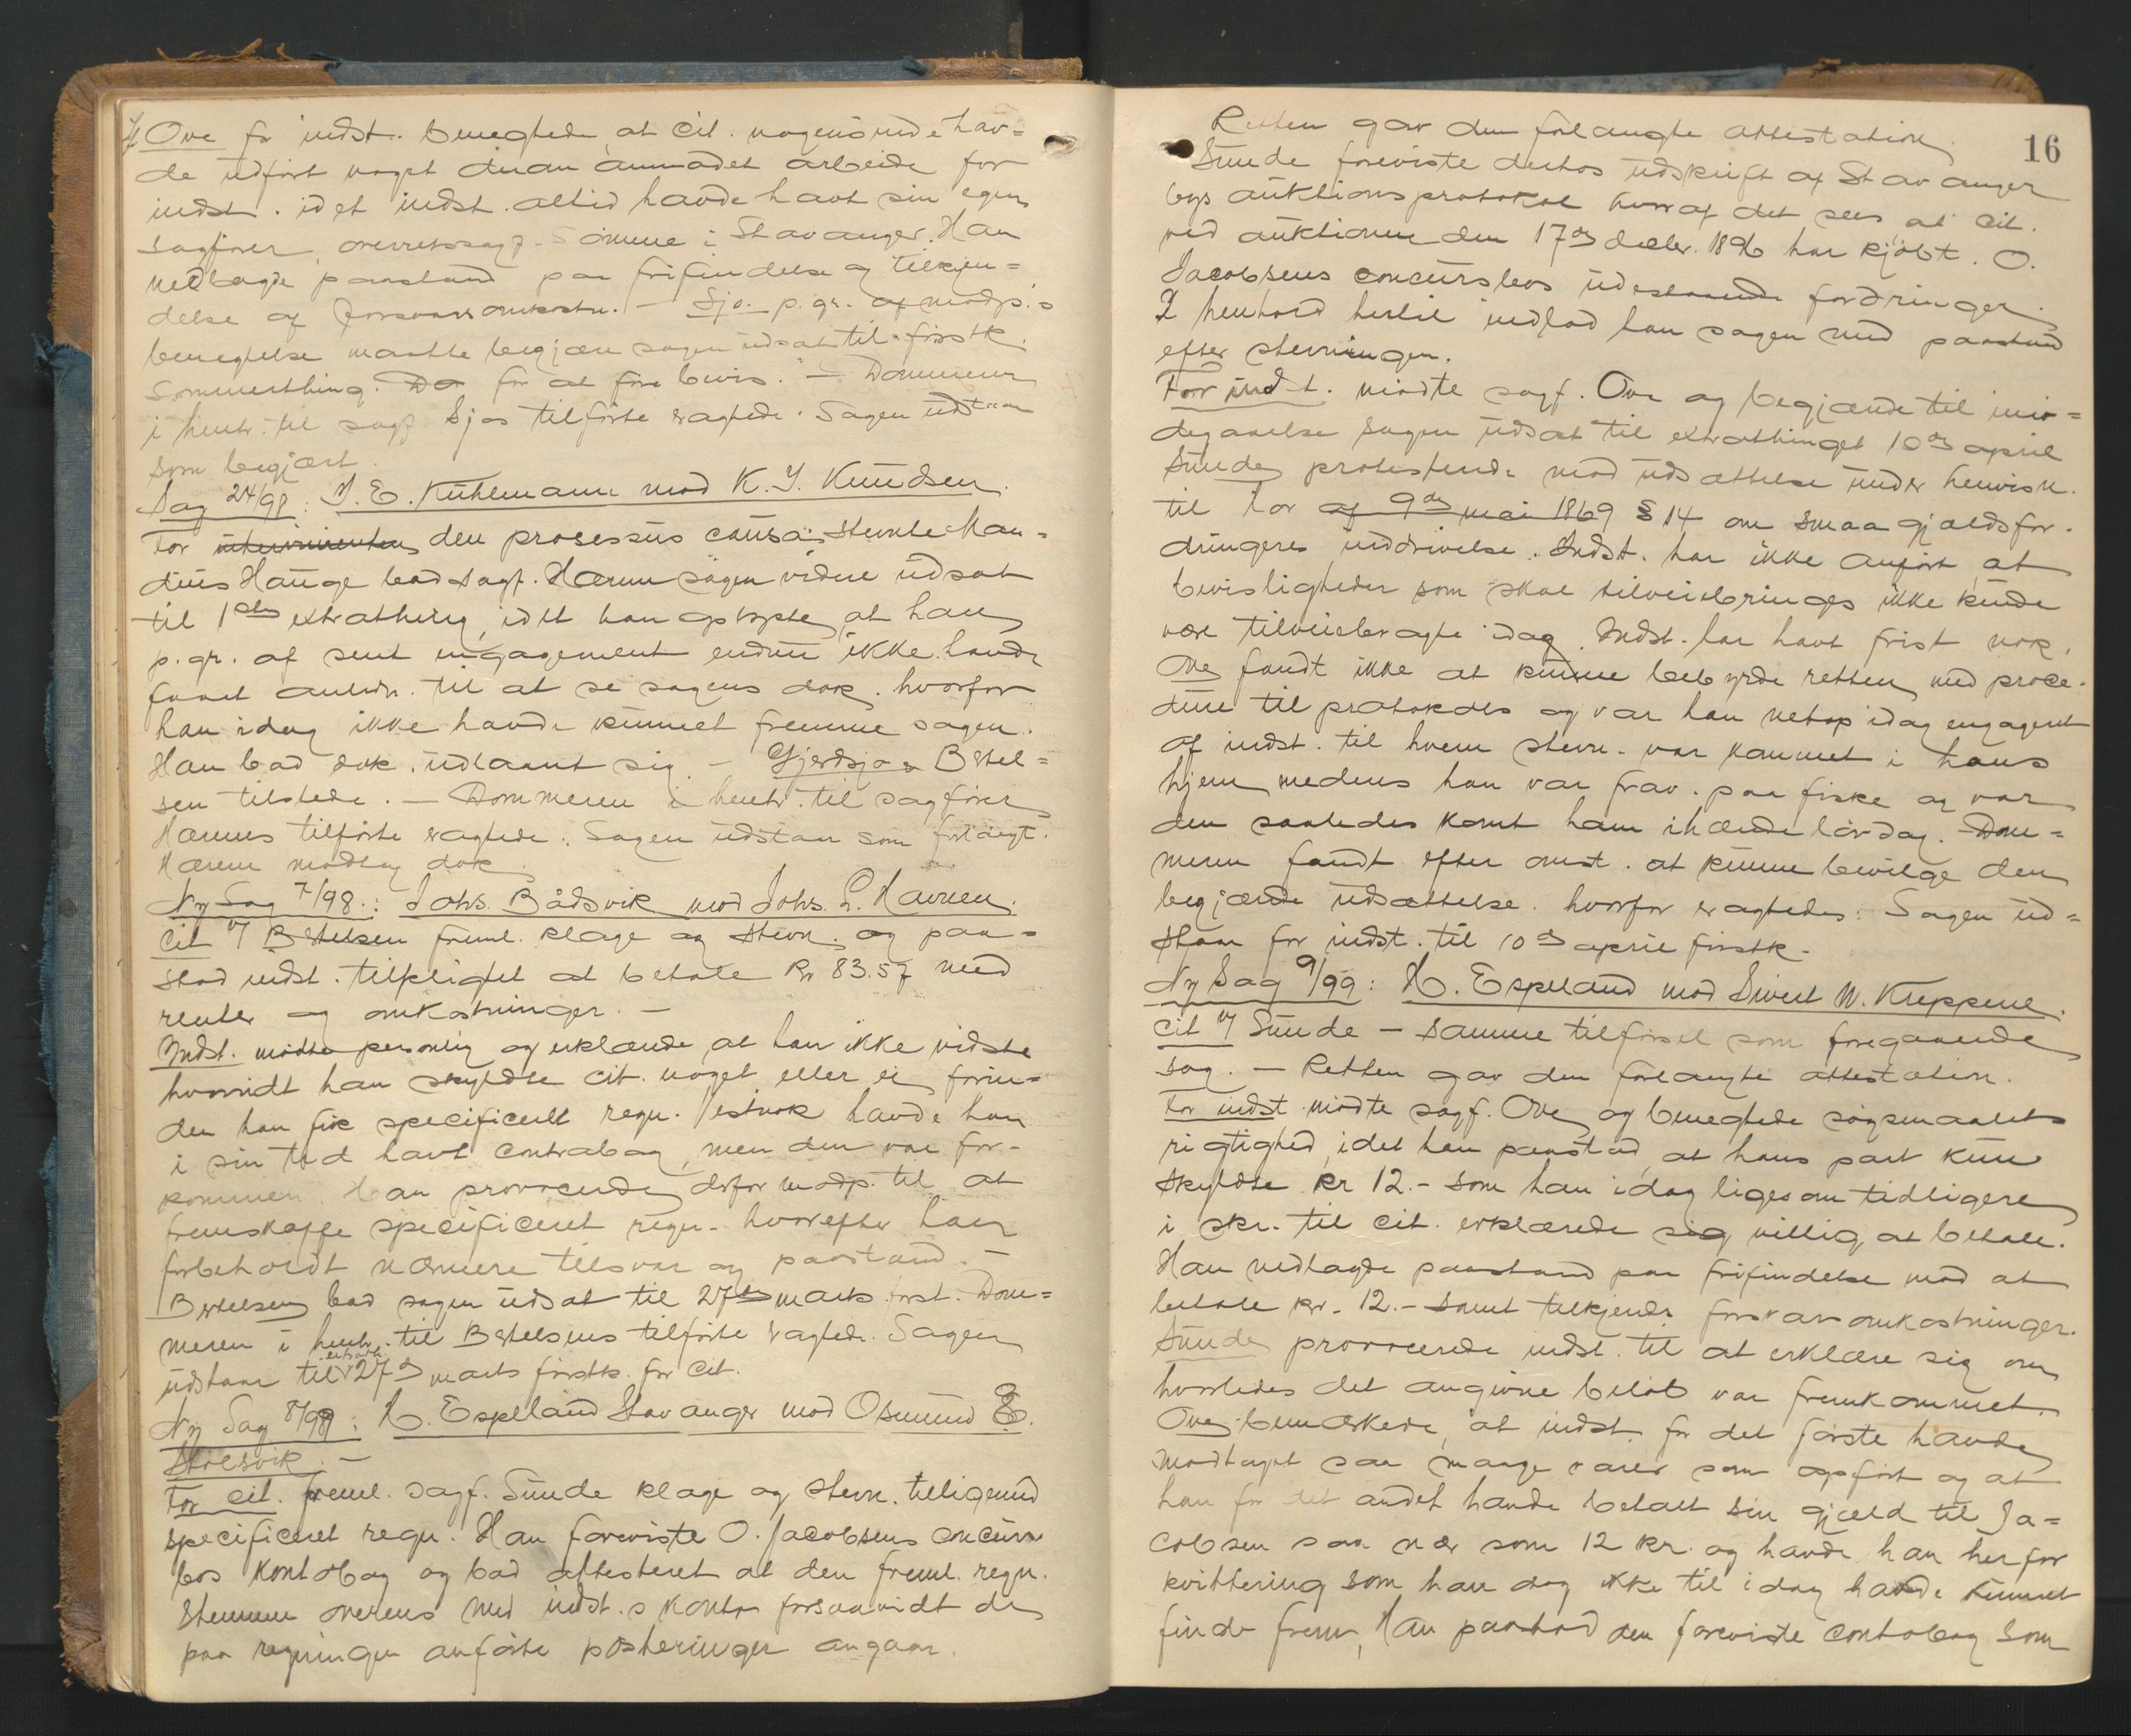 Ove for indst. benegtede, at cit. nogensinde hav-
de udført noget anmodet arbeide for
indst. idet indst. altid havde havt sin egen
sagfører, overretssagf. Sømme i Stavanger. Han
nedlagde paastand paa frifindelse og tilkjen-
delse af forsvarsomkostn. — Sjo. p. gr. af modp.s
benegtelse maatte begjære sagen udsat til førstk.
Sommerthing. for at føre bevis. — Dommeren
i henh. til sagf. Sjos tilførte eragtede: Sagen udstaar
som begjært.
Sag 24/98: J. E. Kühlmann mod K. J. Knudsen.
For den prosessus causa stevnte Man-
dius Hauge bad sagf. Hærem sagen videre udsat
til 1ste extrathing, idet han oplyste, at han
p. gr. af sent engagement endnu ikke havde
faaet anledn. til at se sagens dok. hvorfor
han idag ikke havde kunnet fremme sagen.
Han bad dok. udlaant sig. — Gjerdsjø & Bertel-
sen tilstede. — Dommeren i henh. til sagfører
Hærems tilførte eragtede: Sagen udstaar som forlangt.
Hærem modtog dok.
Ny Sag 7/98: Johs. Bådsvik mod Johs. L. Havneen.
Cit v/ Bertelsen freml. klage og stevn. og paa-
stod indst. tilpligtet at betale Kr 83.57 med
renter og omkostninger. —
Indst. mødte personlig og erklærede, at han ikke vidste
hvorvidt han skyldte cit. noget eller ei forin-
den han fik specificeret regn. Vistnok havde han
i sin tid havt contrabog, men den var for-
kommen. Han provocerede derfor modp. til at
fremskaffe specificeret regn. hvorefter han
forbeholdt nærmere tilsvar og paastand. —
Bertelsen bad sagen udsat til 27de marts først. Dom-
meren i henh. til Bertelsens tilførte eragtede: Sagen
udstaar til extrath. 27de marts førstk. for cit.
Ny Sag 8/99: H. Espeland Stavanger mod Osmund E.
Stolsvik. —
For cit. freml. sagf. Sunde klage og stevn. tilligemed
specificeret regn. Han foreviste O. Jacobsens concurs
bos kontobog og bad attesteret at den freml. regn.
stemmer overens med indst.s konto forsaavidt de
paa regningen anførte posteringer angaar.
16
Retten gav den forlangte attestation
Sunde foreviste derhos udskrift af Stavanger
bys auktionsprotokol hvoraf det sees, at cit.
ved auktionen den 17de decbr. 1896 har kjøbt O.
Jacobsens concursbos udestaaende fordringer.
I henhold hertil indlod han sagen med paastand
efter stevningen.
For indst. mødte sagf. Ove og begjærede til imø-
degaaelse sagen udsat til extrathinget 10de april
Sunde protesterede mod udsættelse under henvisn.
til lov af 9de mai 1869 § 14 om smaa gjældsfor-
dringers inddrivelse. Indst. har ikke anført, at
bevisligheder som skal tilveiebringes ikke kunde
være tilveiebragte idag. Indst. har havt frist nok.
Ove fandt ikke at kunne bebyrde retten med proce-
dure til protokols og var han netop idag engageret
af indst. til hvem stevn. var kommet i hans
hjem medens han var frav. paa fiske og var
den saaledes komt ham ihænde lørdag. Dom-
meren fandt efter omst. at kunne bevilge den
begjærede udsættelse. hvorfor eragtedes: Sagen ud-
staar for indst. til 10de april førstk.
Ny Sag 9/99: H. Espeland mod Sivert N. Kreppene.
Cit v/ Sunde — Samme tilførsel som foregaaende
sag. — Retten gav den forlangte attestation.
For indst. mødte sagf. Ove og benegtede søgsmaalets
rigtighed, idet han paastod, at hans part kun
skyldte Kr 12.- som han idag ligesom tidligere
i skr. til cit. erklærede sig villig at betale.
Han nedlagde paastand paa frifindelse mod at
betale kr. 12.- samt tilkjende forsvarsomkostninger.
Sunde provocerede indst. til at erklære sig om
hvorledes det angivne beløb var fremkommet.
Ove bemærkede, at indst. for det første havde
modtaget saa mange varer som opført og at
han for det andet havde betalt sin gjæld til Ja-
cobsen saa nær som 12 kr. og havde han herfor
kvittering som han dog ikke til idag havde kunnet
finde frem, Han paastod den foreviste contobog som